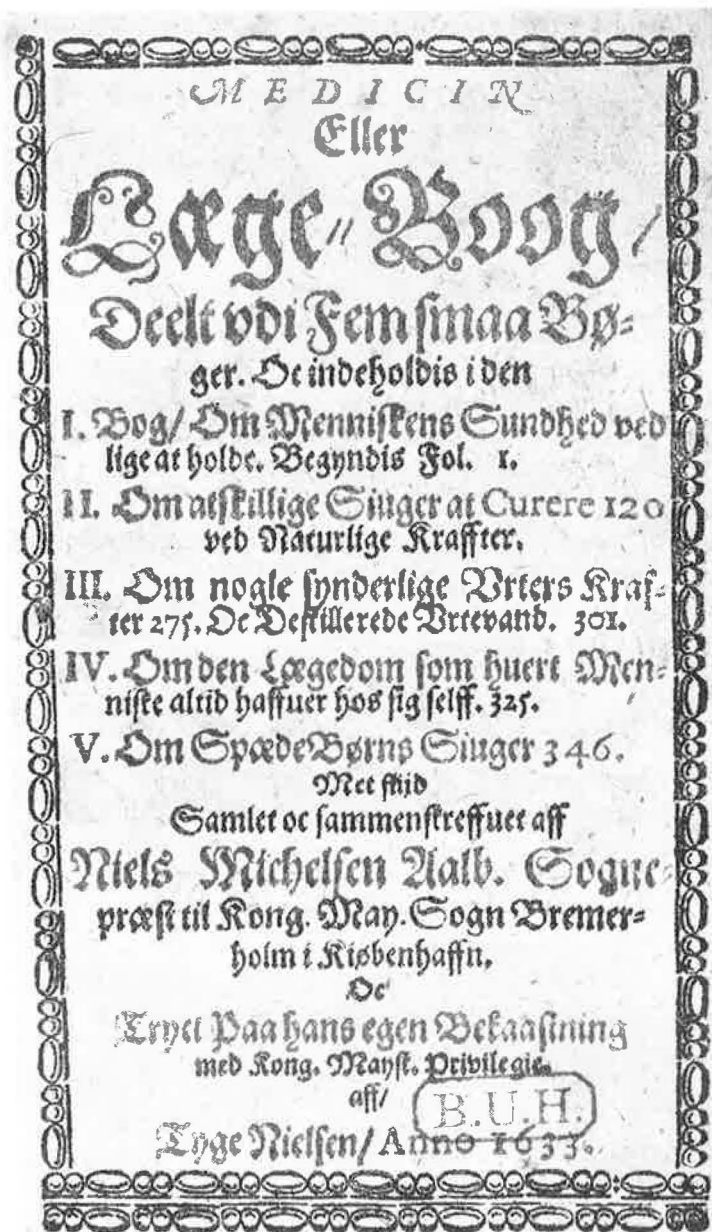 MEDICIN
Eller
Læge⸗Boog/
Deelt vdi Fem smaa Bø⸗
ger. Oc indeholdis i den
I. Bog/ Om Menniskens Sundhed ved
lige at holde. Begyndis Fol. 1.
II. Om atskillige Siuger at Curere 120
ved Naturlige Kraffter.
III. Om nogle synderlige Vrters Kraf⸗
ter 275. Oc Destillerede Vrtevand. 301.
IV. Om den Lægedom som huert Men⸗
niske altid haffuer hos sig selff. 325.
V. Om Spæde Børns Siuger 346.
Met flid
Samlet oc sammenskreffuet aff
Niels Michelsen Aalb. Sogne⸗
præst til Kong. May. Sogn Bremer⸗
holm i Kiøbenhaffn.
Oc
Tryct Paa hans egen Bekaastning
med Kong. Mayst. Privilegie.
aff/
B.U.H.
Tyge Nielsen/ Anno 1633.